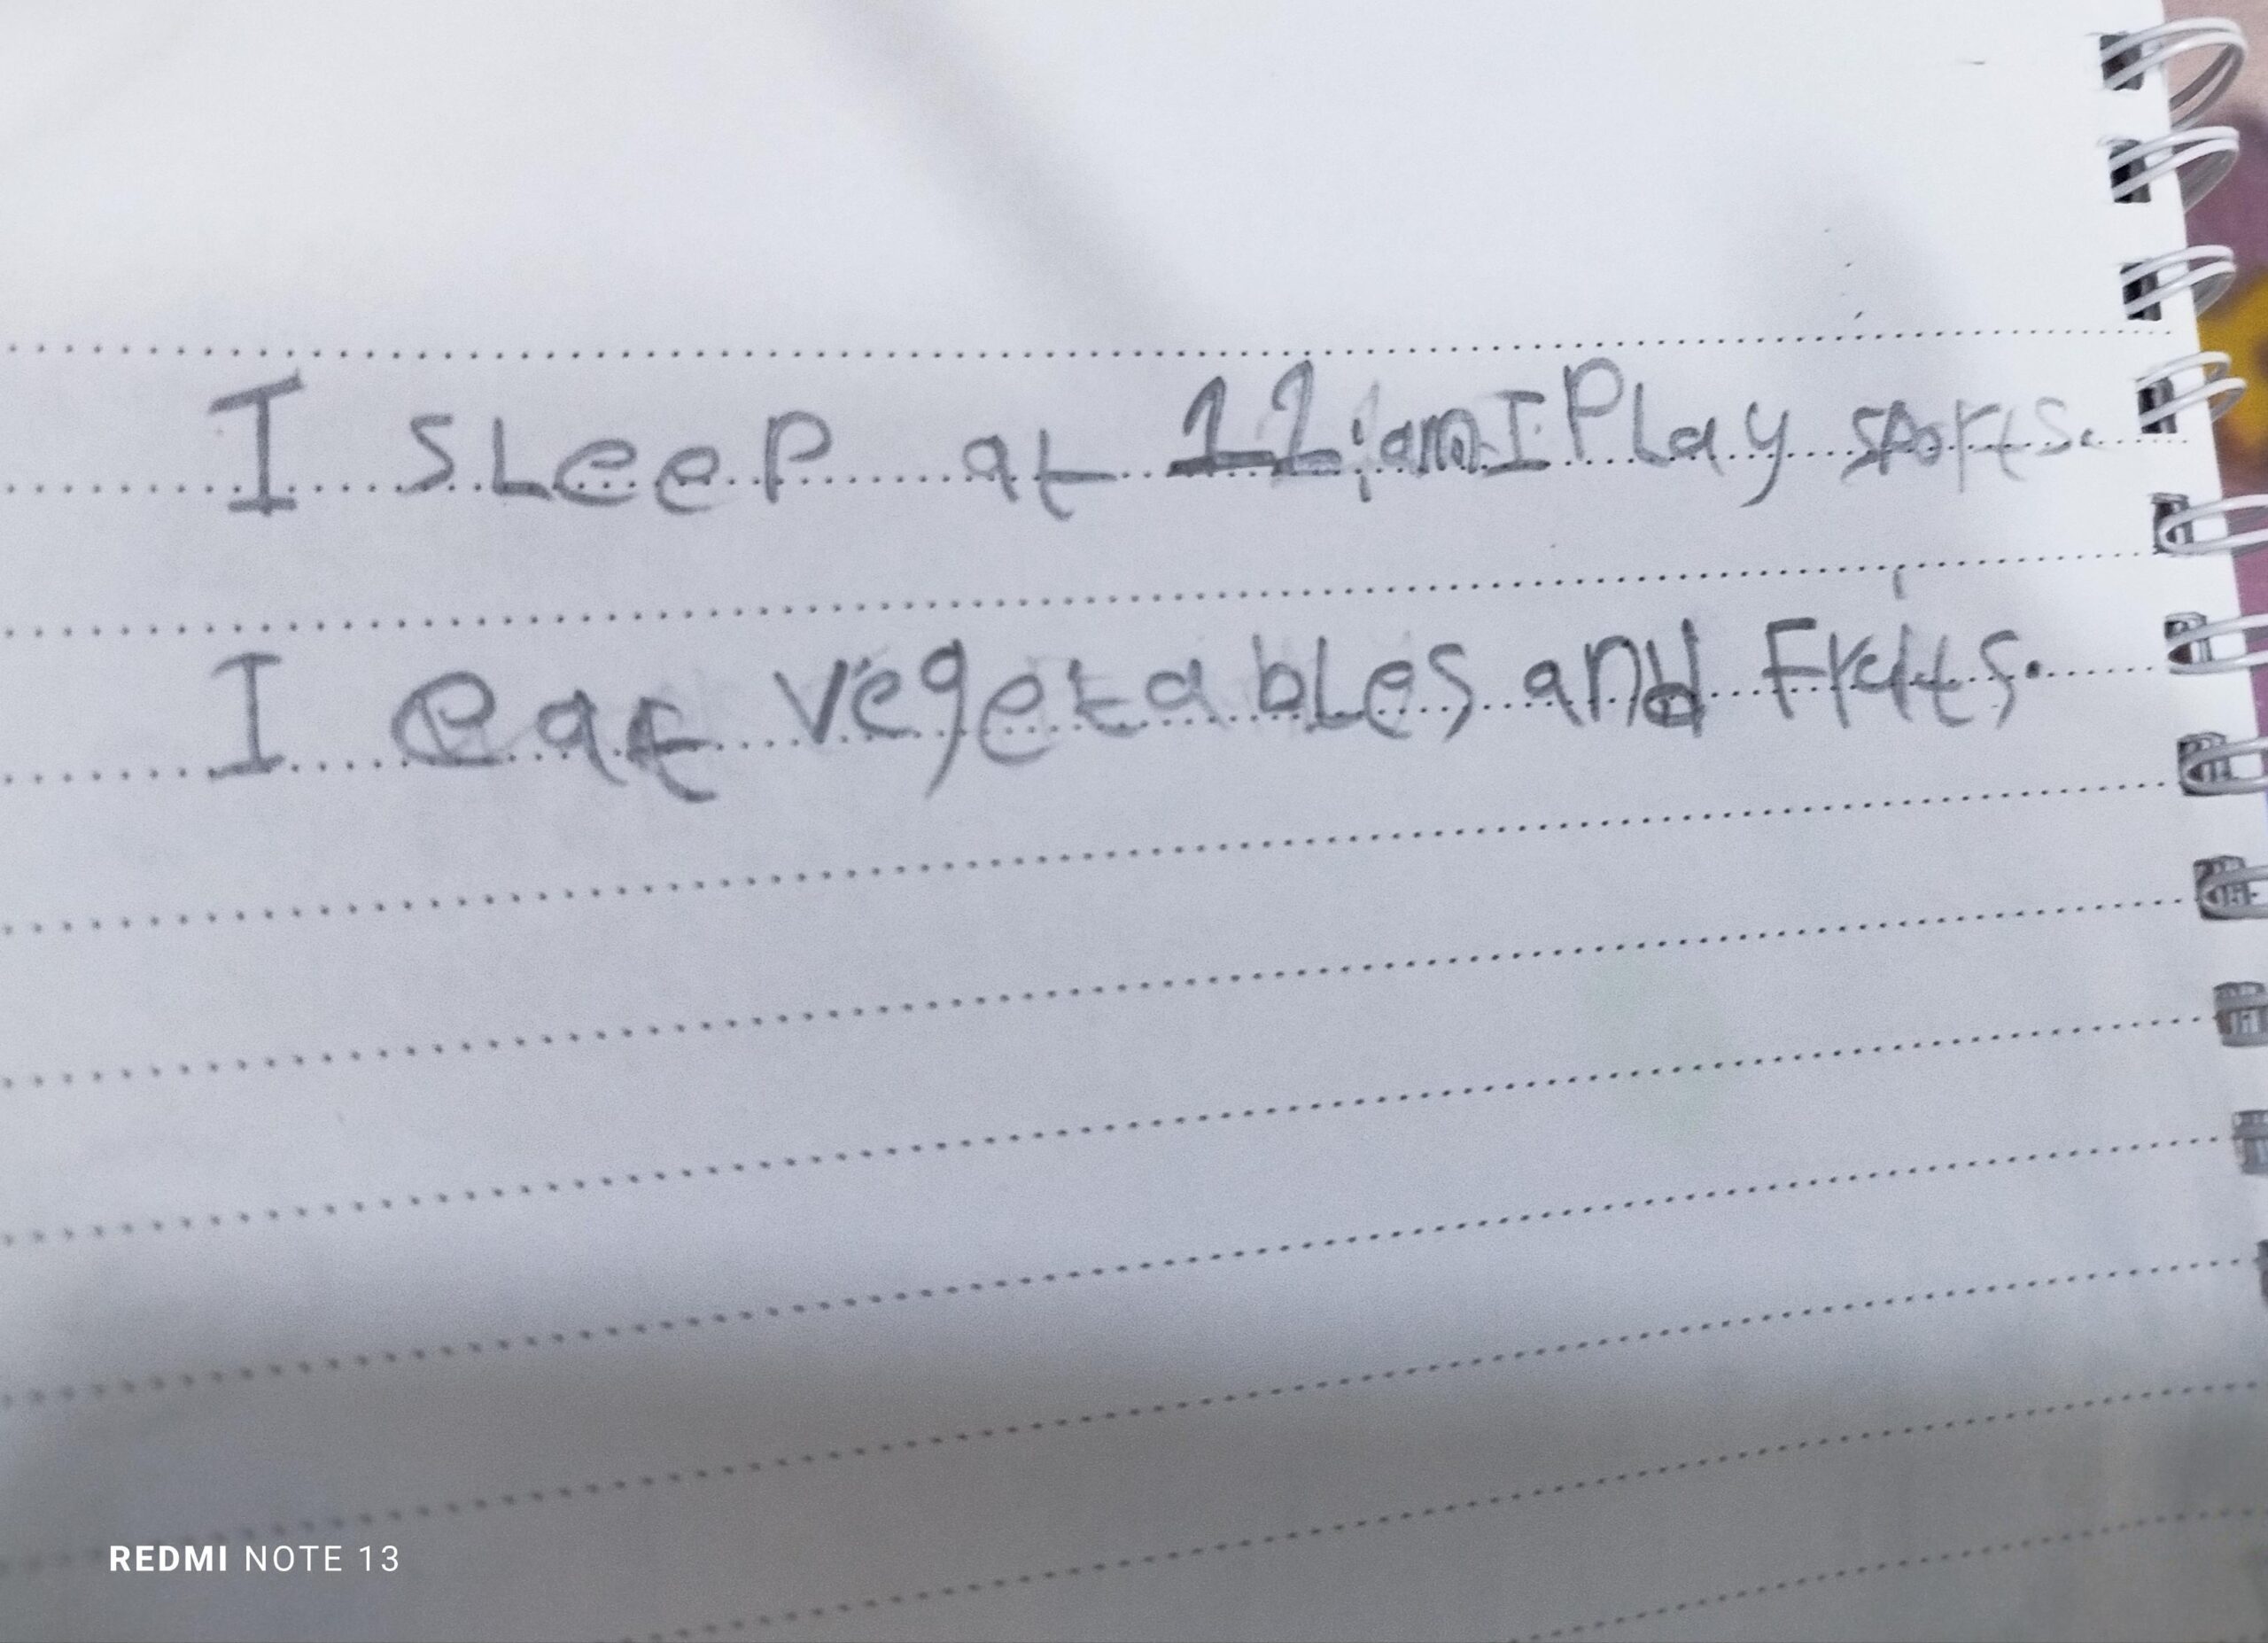 I sleep at 11:am I Play sports.
I eat vegetables and Fruits.
REDMI NOTE 13